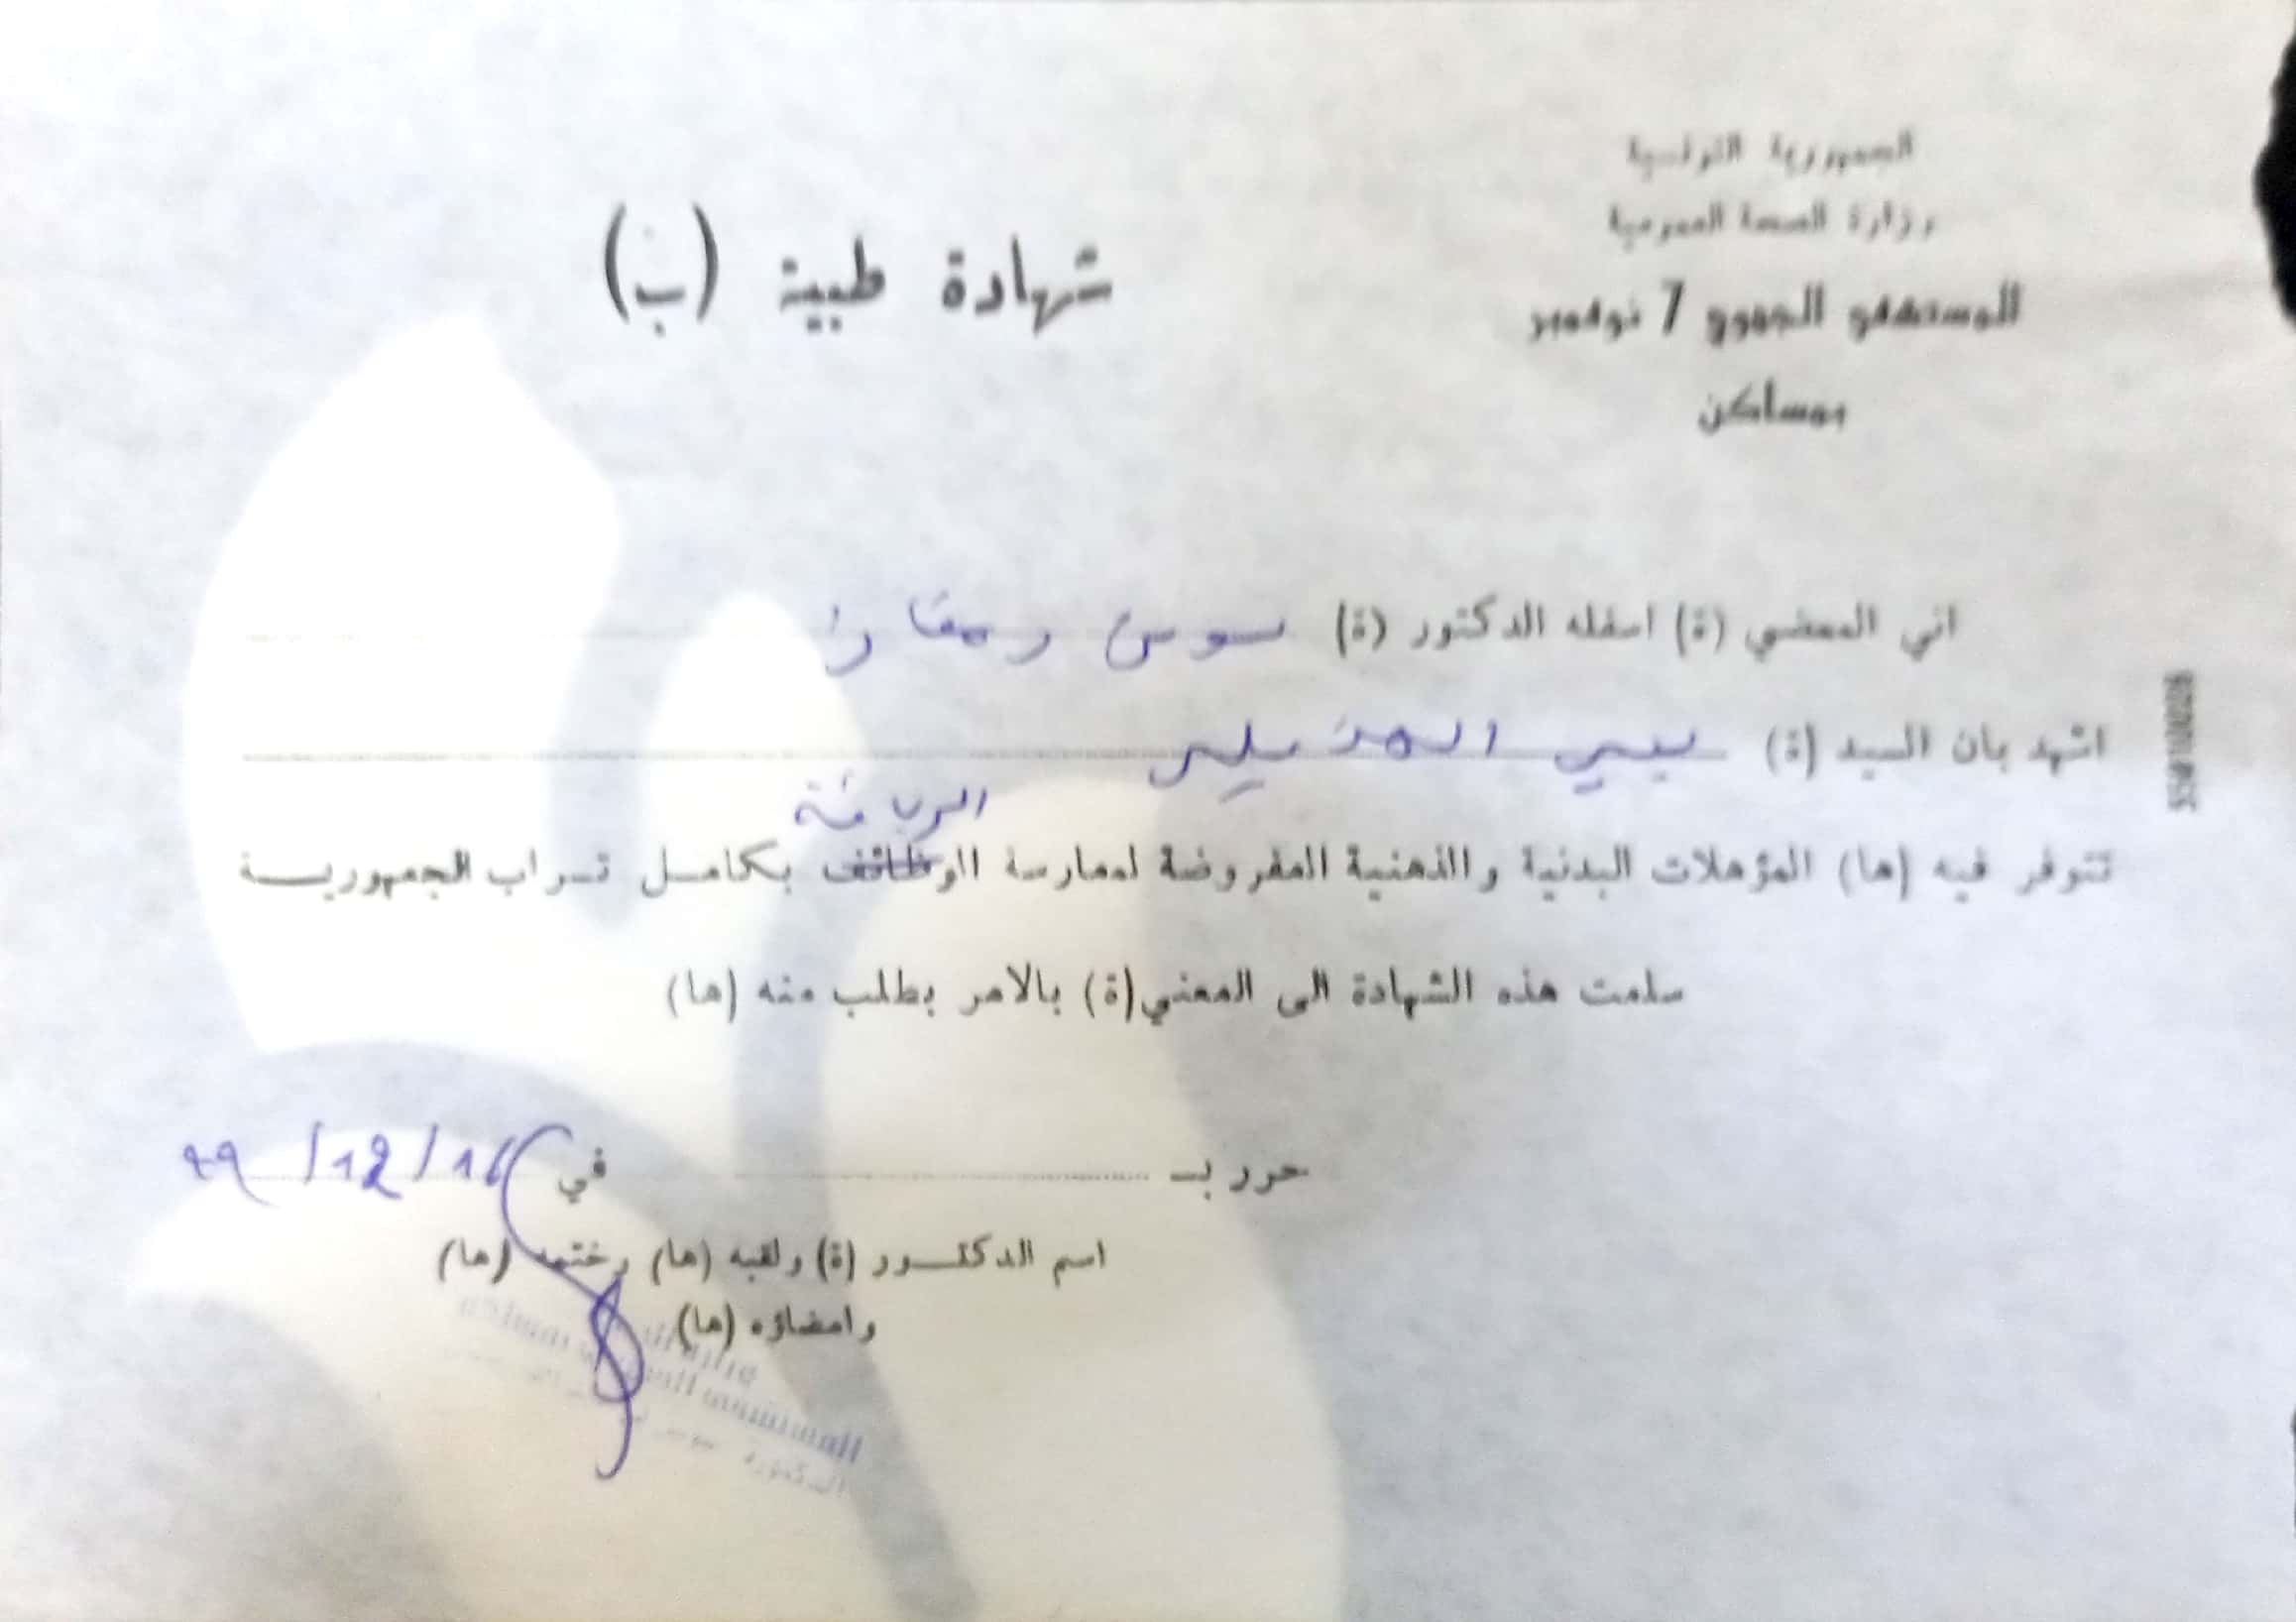 الجمهورية التونسية
وزارة الصحة العمومية
المستشفى الجهوي 7 نوفمبر
بمساكن
شهادة طبية (ب)
اني الممضي (ة) اسفله الدكتور (ة) سوسن
اشهد بان السيد (ة)
الرياضة
تتوفر فيه (ها) المؤهلات البدنية والذهنية المفروضة لممارسة الوظائف بكامل تراب الجمهورية
سلمت هذه الشهادة الى المعني(ة) بالامر بطلب منه (ها)
حرر بـ في 16/12/99
اسم الدكتور (ة) ولقبه (ها) وختمه (ها)
وامضاؤه (ها)